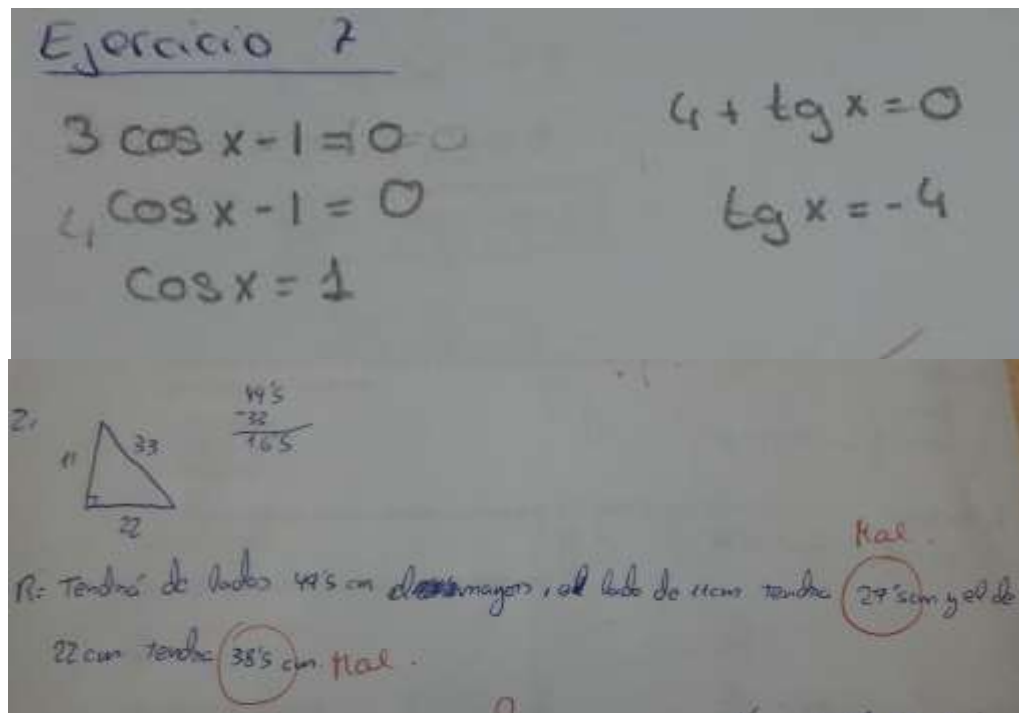 Ejercicio 7
3 cos x - 1 = 0
cos x - 1 = 0
cos x = 1
4 + tg x = 0
tg x = - 4
2.
11
33
22
49'5
-33
16'5
Mal.
R= Tendrá de lados 49'5 cm mayor, el lado de 11cm tendra 27'5cm y el de
22 cm tendra 38'5 cm. Mal.